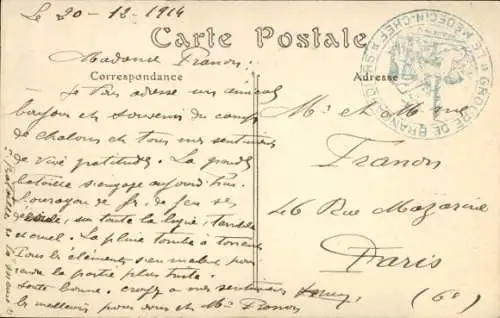 Le 20-12-1914
Carte Postale
Correspondance
Adresse
Madame Franon
Je vous adresse un amical
bonjour et souvenir du camp
de chalons et tous mes sentiments
de vive gratitudes. La grande
bataille s'engage aujourd'hui
L'ouragan de fer, de feu se
sur toute la ligne, terrible
et cruel. La pluie tombe à torrents
Tous les éléments s'en mêlent pour
rendre la partie plus triste.
mes sentiments
les meilleurs pour vous et Mr Franon
Mr et Mme
Franon
46 Rue Mazarine
Paris
(6e)
LE MEDECIN-CHEF
GROUPE DE BRANCARDIERS